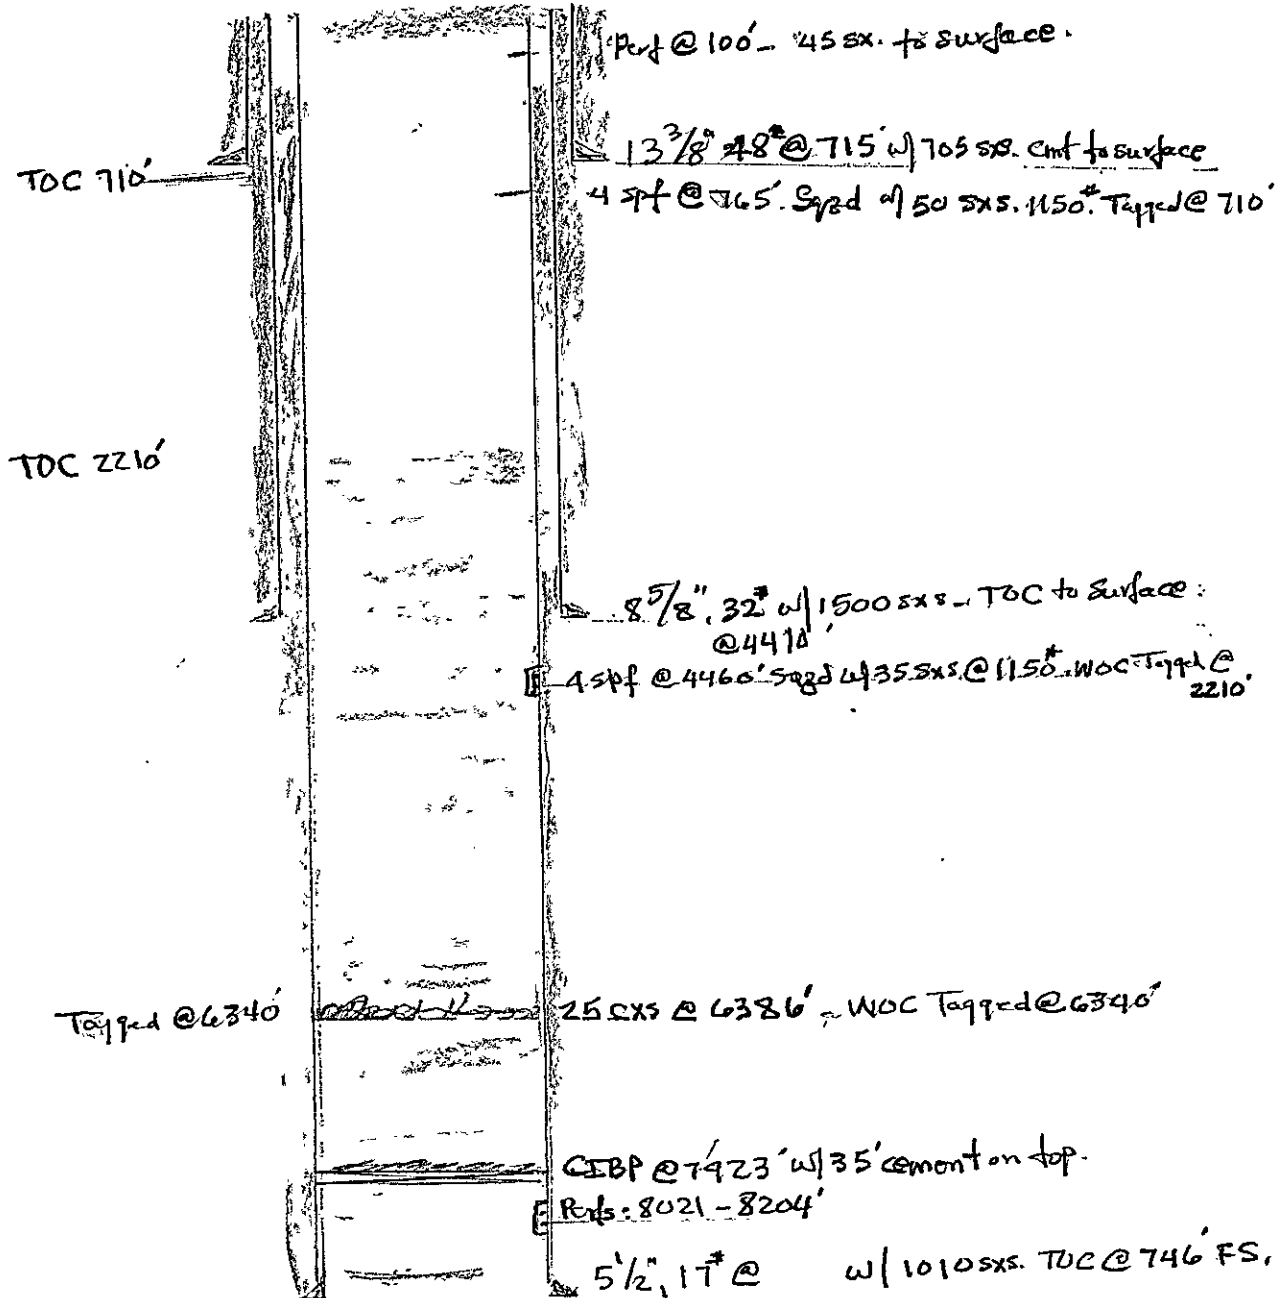 Perf @ 100' - 45 sx. to surface.
13 3/8" 48# @ 715' w/ 705 sxs. cmt to surface
TOC 710'
4 spf @ 765'. Sqzd w/ 50 sxs. 1150# Tagged @ 710'
TOC 2210'
8 5/8", 32# w/ 1500 sxs - TOC to Surface.
@ 4410'
4 spf @ 4460' Sqzd w/ 35 sxs. @ 1150# WOC Tagged @
2210'
Tagged @ 6340'
25 sxs @ 6386' - WOC Tagged @ 6340'
CIBP @ 7923' w/ 35' cement on top.
Perfs: 8021 - 8204'
5 1/2", 17# @ w/ 1010 sxs. TOC @ 746' FS.